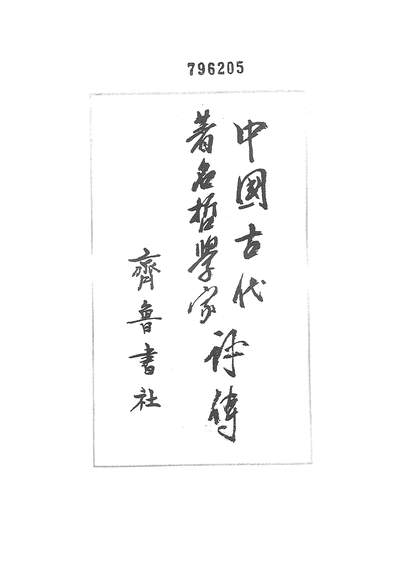 796205
中國古代
著名哲學家评傳
齊魯書社